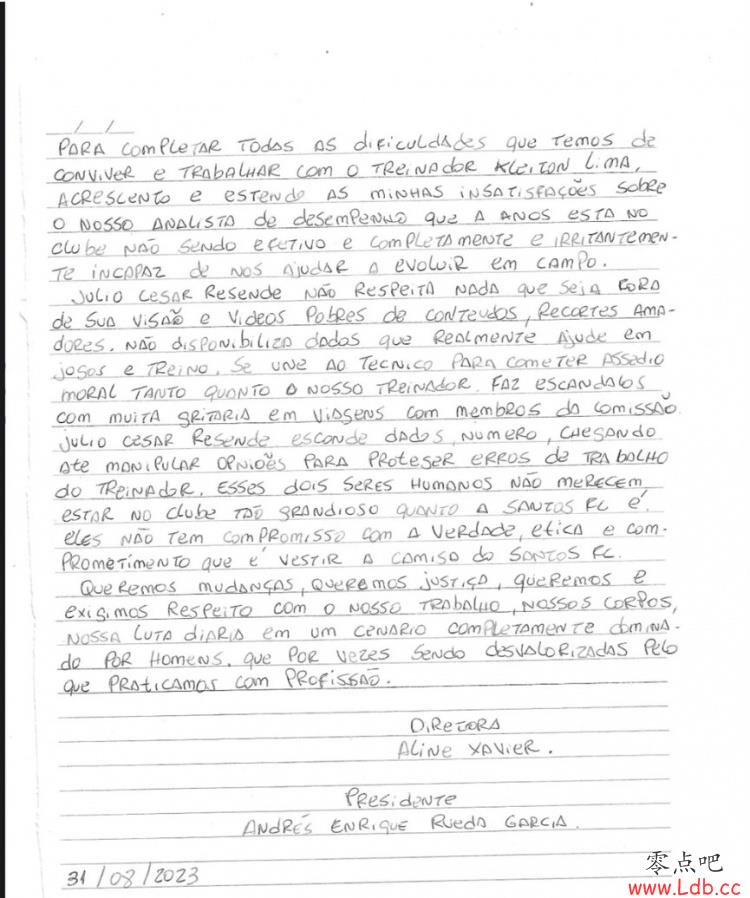 __/__/__
PARA COMPLETAR TODAS AS dificuldades que temos de
CONVIVER e TRABALHAR COM O TREINADOR KLEITON LIMA,
ACRESCENTO e ESTENDO AS MINHAS INSATISFAÇÕES SOBRE
O NOSSO ANALISTA de desempenho que A ANOS ESTA NO
clube NÃO SENDO EFETIVO e COMPLETAMENTE e IRRITANTEMEN-
TE INCAPAZ de NOS AJUDAR A evoluir em CAMPO.
JULIO CESAR RESENDE NÃO RESPEITA NADA que SEJA FORA
de SUA VISÃO e VIDEOS POBRES de CONTEUDOS, RECORTES AMA-
DORES. NÃO disponibiliza dados que REALMENTE AJUDE em
JOGOS e TREINO. Se UNE AO TECNICO PARA COMETER ASSEDIO
MORAL TANTO QUANTO O NOSSO TREINADOR. FAZ ESCANDALOS
COM MUITA GRITARIA em VIAGENS COM MEMBROS da COMISSÃO.
JULIO CESAR RESENDE ESCONDE DADOS, NUMERO, CHEGANDO
ATE MANIPULAR OPNIÕES PARA PROTEGER ERROS de TRABALHO
do TREINADOR. ESSES DOIS SERES HUMANOS NÃO MERECEM
ESTAR NO Clube TÃO GRANDIOSO QUANTO A SANTOS FC É.
eles NÃO TEM COMPROMISSO COM A VERDADE, ETICA e COM-
PROMETIMENTO que é VESTIR A CAMISA do SANTOS FC.
QUEREMOS MUDANÇAS, QUEREMOS JUSTIÇA, QUEREMOS e
EXIGIMOS RESPEITO COM O NOSSO TRABALHO, NOSSOS CORPOS,
NOSSA LUTA DIARIA em um CENARIO COMPLETAMENTE DOMINA-
do POR HOMENS. que POR VEZES SENDO DESVALORIZADAS PELO
que PRATICAMOS COM PROFISSÃO.
DIRETORA
ALINE XAVIER.
PRESIDENTE
ANDRÉS ENRIQUE RUEDA GARCIA.
31/08/2023
零点吧
www.Ldb.cc